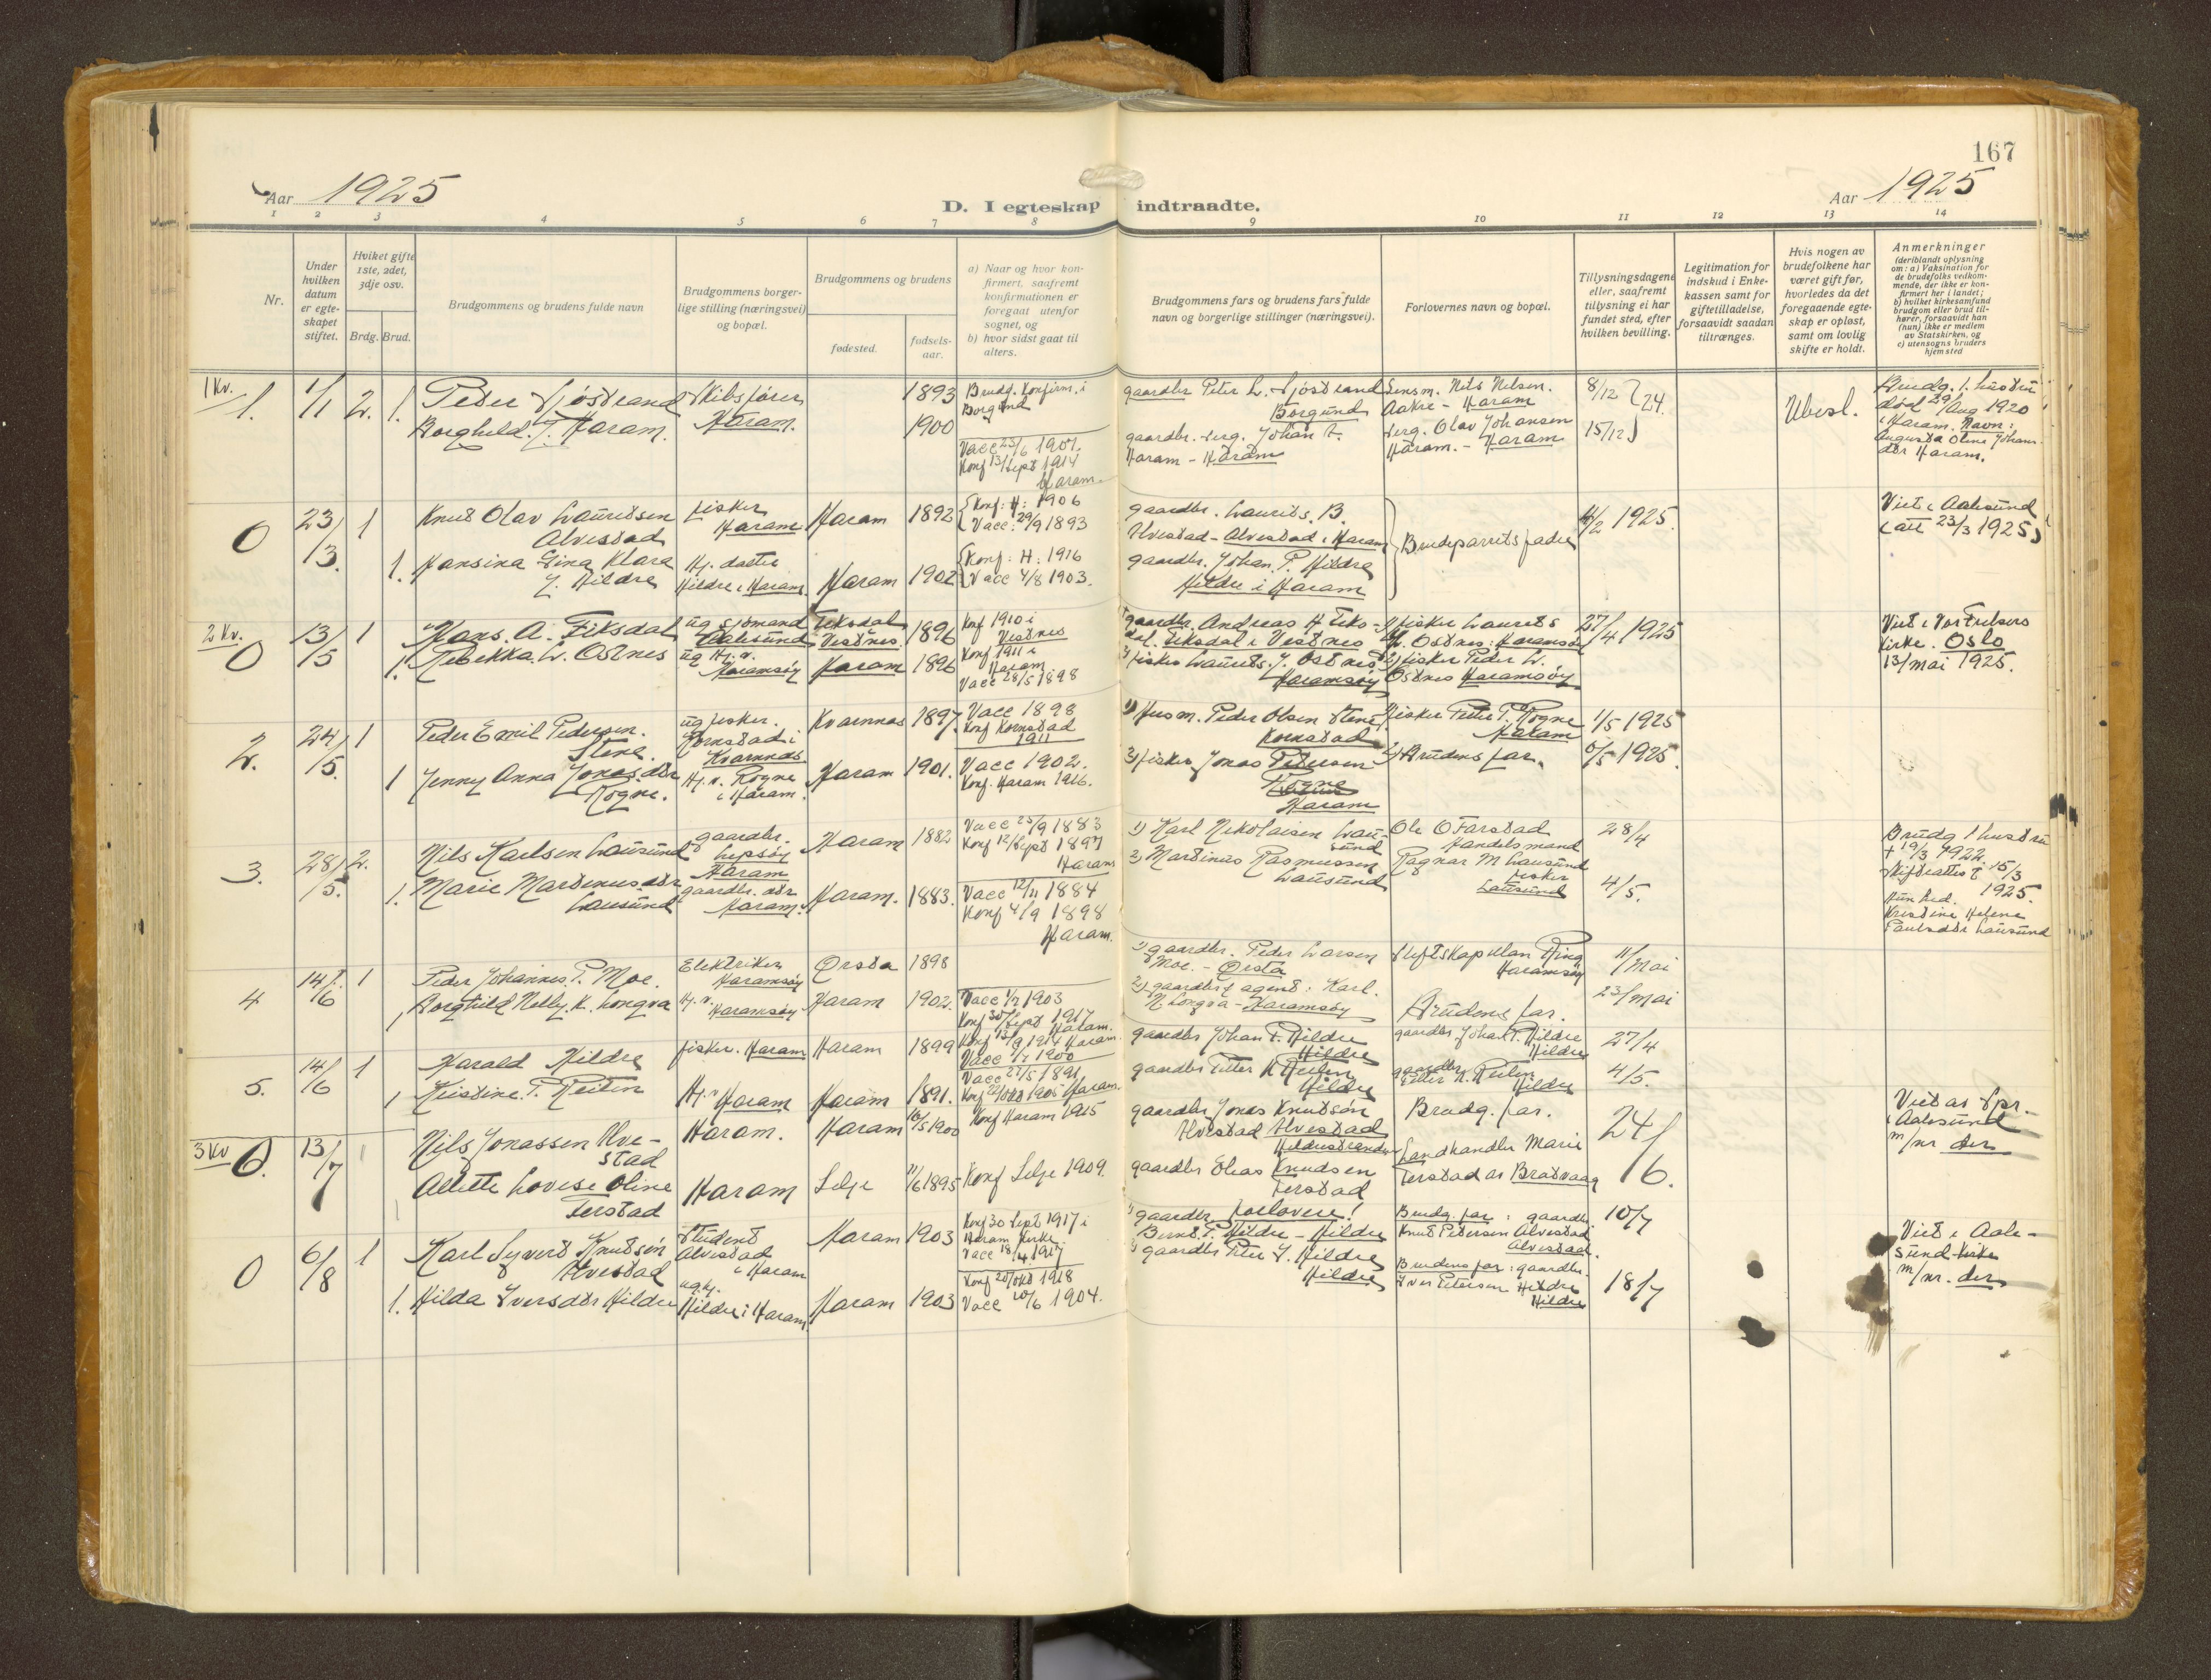 167
Aar 1925
Aar 1925
D. I egteskap indtraadte.
1 2 3 4 5 6 7 8 9 10 11 12 13 14
Nr.
Under hvilken datum er egteskapet stiftet.
Hvilket gifte 1ste, 2det, 3dje osv.
Brdg. Brud.
Brudgommens og brudens fulde navn
Brudgommens borgerlige stilling (næringsvei) og bopæl.
Brudgommens og brudens
fødested.
fødselsaar.
a) Naar og hvor konfirmert, saafremt konfirmationen er foregaat utenfor sognet, og
b) hvor sidst gaat til alters.
Brudgommens fars og brudens fars fulde navn og borgerlige stillinger (næringsvei).
Forlovernes navn og bopæl.
Tillysningsdagene eller, saafremt tillysning ei har fundet sted, efter hvilken bevilling.
Legitimation for indskud i Enkekassen samt for giftetilladelse, forsaavidt saadan tiltrænges.
Hvis nogen av brudefolkene har været gift før, hvorledes da det foregaaende egteskap er opløst, samt om lovlig skifte er holdt.
Anmerkninger
(deriblandt oplysning om: a) Vaksination for de brudefolks vedkommende, der ikke er konfirmert her i landet;
b) hvilket kirkesamfund brudgom eller brud tilhører, forsaavidt han (hun) ikke er medlem av Statskirken, og
c) utensogns bruders hjemsted
1 Kv.
1. 1/1 2. 1.
Peder Sjøstrand
Borghild J. Haram.
Skibsfører
Haram.
1893
1900
Brudg. Konfirm. i
Borgund
Vacc 23/6 1901.
Konf 13/Sept 1914
Haram.
gaardbr Peter L. Sjøstrand
Borgund
gaardbr. Serg. Johan A.
Haram - Haram
Lensm. Nils Nilsen.
Aakre - Haram
Serg. Olav Johansen
Haram. - Haram
8/12
15/12 } 24.
Ubesl.
Brudg. 1. hustru
død 29/Aug 1920
i Haram. Navn:
Augusta Oline Johans-
dtr Haram.
0 23/3. 1 1.
Knut Olav Lauritsen
Alvestad
Hansina Gina Klara
J. Hildre
fisker
Haram
Hj. datter
Hildre i Haram.
Haram 1892
Haram 1902
Konf: H: 1906
Vacc: 29/9 1893
Konf: H: 1916
Vacc 4/8 1903.
gaardbr. Laurits. B.
Ulvestad - Alvestad i Haram
gaardbr. Johan. P. Hildre
Hildre i Haram
Brudeparrets fædre
4/2 1925.
Viet i Aalesund
(att 23/3 1925)
2 Kv.
0 13/5 1 1.
Hans. A. Fiksdal
Rebekka. L. Ostnes
ug sjømand
Aalesund
ug Hj. v.
Haramsøy
Fiksdal
Vestnes. 1896
Haram 1896
Konf 1910 i
Vestnes
Konf 1911 i
Haram
Vacc 28/5 1898
gaardbr. Andreas H Fiks-
dal. Fiksdal i Vestnes
fisker Laurits. J. Ostnes
Haramsøy
1) fisker Laurits
J. Ostnes: Haramsøy
2) fisker Peder L.
Ostnes Haramsøy
27/4 1925
Viet i Vor Frelsers
Kirke. Oslo
13/mai 1925.
2. 24/5. 1 1
Peder Emil Pedersen.
Stene.
Jenny Anna Jonasdtr
Rogne.
ug fisker.
Kornstad i
Kvarnnes
Hj. v. Rogne
i Haram.
Kvarnnes 1897.
Haram 1901.
Vacc 1898
Konf Kornstad
1911
Vacc 1902.
Konf. Haram 1916.
1) Husm. Peder Olsen Stene
Kornstad
2) fisker Jonas Petersen
Rogne
Haram
fisker Petter P. Rogne
Haram
2) Brudens far.
1/5 1925
6/5 1925
3. 28/5. 2. 1.
Nils Karlsen Lausund
Marie Martinusdtr
Lausund
gaardbr.
Lepsøy
Haram
gaardbr. dtr
Haram.
Haram 1882
Haram. 1883.
Vacc 25/9 1883
Konf 12/Sept 1897
Haram
Vacc 12/11 1884
Konf 4/9 1898
Haram.
1) Karl Nikolaisen Lau-
sund
2) Martinus Rasmussen
Lausund
Ole O Farstad
Handelsmand
Ragnar M Lausund
fisker
Lausund
28/4
4/5.
Brudg 1 hustru
† 19/3 1922.
Skifteattest 15/3
1925.
Hun hed.
Kristine Helene
Paulsdtr Lausund
4 14/6 1 1
Peder Johannes. P. Moe.
Borghild Nelly. K. Longva
Elektriker
Haramsøy
Hj. v.
Haramsøy
Ørsta 1898
Haram 1902.
Vacc 1/7 1903
Konf 30/Sept 1917
Haram.
1) gaardbr. Peder Larsen
Moe. - Ørsta
2) gaardbr agent: Karl.
N. Longva - Haramsøy
Stiftskapellan Ring
Haramsøy
Brudens far.
11/mai
23/mai
5. 14/6 1 1
Harald Hildre
Kristine. P. Reiten
fisker. Haram
Hj. Haram
Haram 1899
Haram 1891.
Konf 13/9 1914 Haram.
Vacc 1/7 1900
Vacc 27/5 1891
Konf 22/Okt 1905 Haram.
gaardbr Johan P. Hildre
Hildre
gaardbr Petter K Reiten
Hildre
gaardbr Johan P. Hildre
Hildre
gaardbr
Petter K. Reiten
Hildre
27/4
4/5.
3 Kv
0. 13/7 1
Nils Jonassen Ulve-
stad
Alette Lovise Oline
Ferstad
Haram.
Haram
Haram 16/5 1900
Selje 11/6 1895
Konf Haram 1915
Konf Selje 1909.
gaardbr Jonas Knutsøn
Ulvestad Alvestad
Hildrestranden
gaardbr Elias Knudsen
Ferstad
Brudg. far.
Landhandler Marie
Ferstad av Brattvaag
24/6.
Viet av Spr.
i Aalesund
m/nr der
0 6/8 1 1.
Karl Syvert Knutsøn
Alvestad
Hilda Iversdtr Hildre
Student
Alvestad
i Haram
ug hj.
Hildre i Haram
Haram 1903
Haram 1903
Konf 30 Sept 1917 i
Haram Kirke
Vacc 18/4 1917
Konf 20/okt 1918
Vacc 10/6 1904.
forlovere!
1) gaardbr
Bernt. P. Hildre - Hildre
gaardbr Peter J. Hildre
Hildre
Brudg. far: gaardbr.
Knut Pedersen Alvestad
Alvestad.
Brudens far: gaardbr.
Iver Petersen Hildre
Hildre
10/7
18/7
Viet i Aale-
sund kirke
m/nr. der